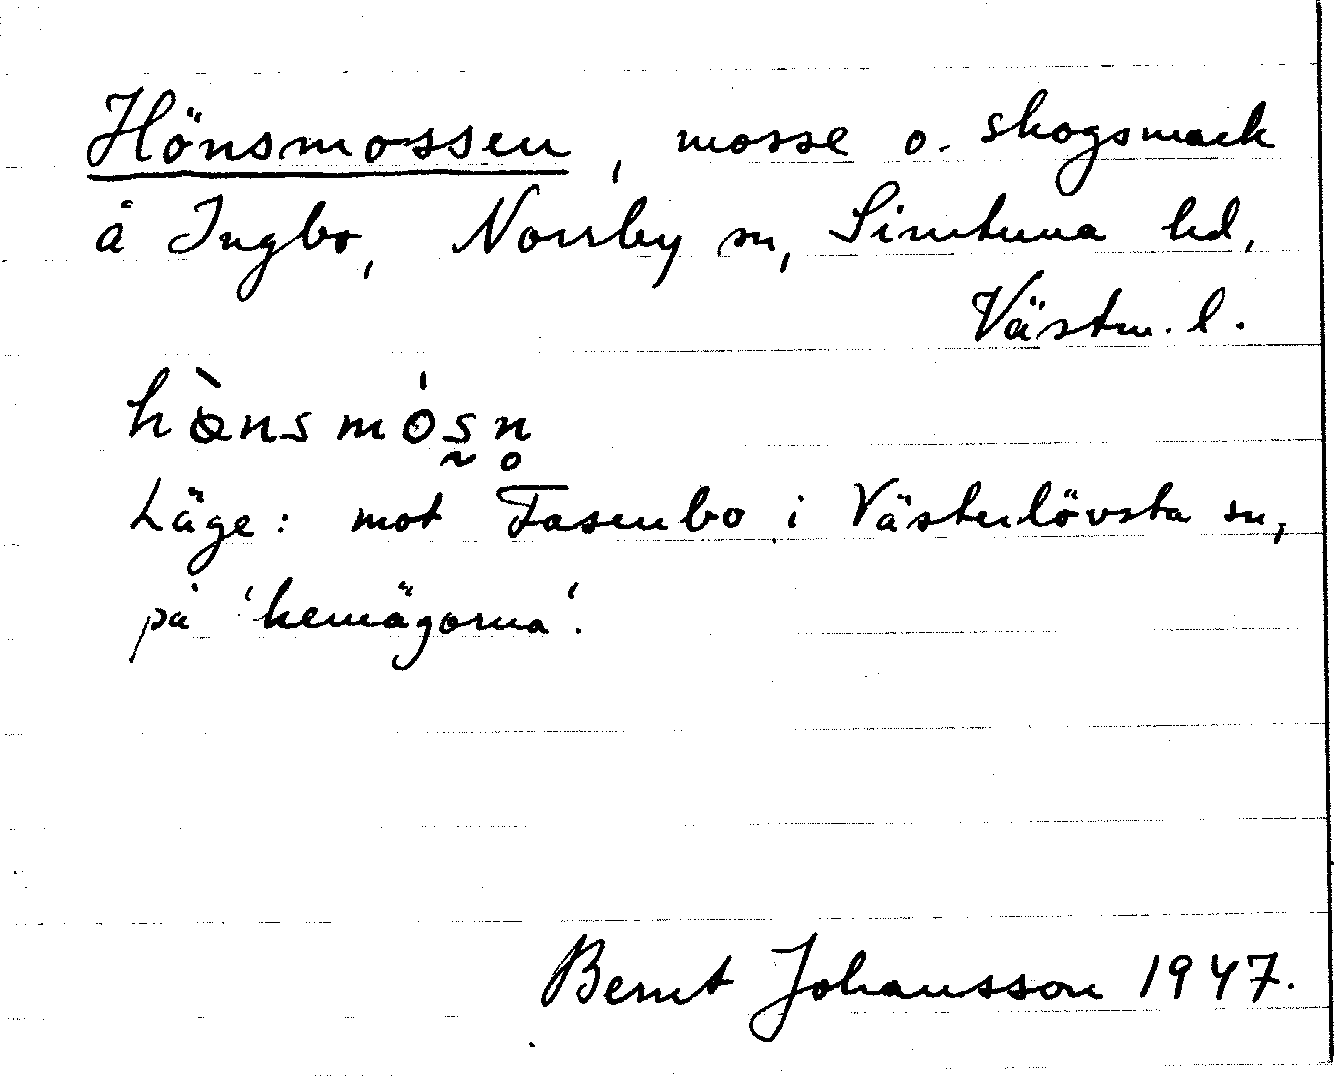 Hönsmossen, mosse o. skogsmark
å Ingbo, Norrby sn, Simtuna hd,
Västm. l.
hø̀nsmósn̥
Läge: mot Fasenbo i Västerlövsta sn,
på 'hemägorna'.
Bernt Johansson 1947.